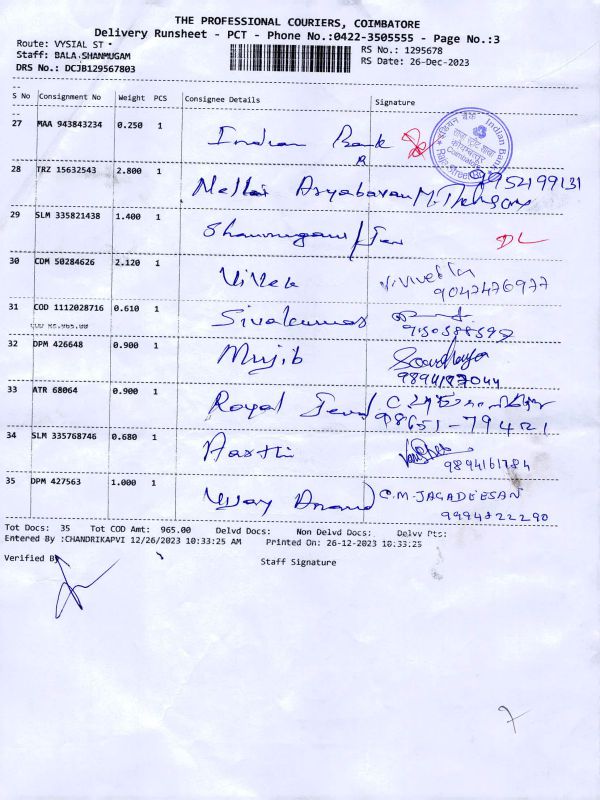 THE PROFESSIONAL COURIERS, COIMBATORE
Delivery Runsheet - PCT - Phone No.:0422-3505555 - Page No.:3
Route: VYSIAL ST
RS No.: 1295678
Staff: BALA.SHANMUGAM
RS Date: 26-Dec-2023
DRS No.: DCJB129567803
S No Consignment No Weight PCS Consignee Details Signature
27 MAA 943843234 0.250 1 Indian Bank
28 TRZ 15632543 2.800 1 Nellai 9952199131
29 SLM 335821438 1.400 1 Shanmugam DL
30 CDM 50284626 2.120 1 Vivek
9047476977
31 COD 1112028716 0.610 1 Sivakumar
32 DPM 426648 0.900 1 Mujib
9894187044
33 ATR 68064 0.900 1 Royal
98651-79421
34 SLM 335768746 0.680 1 Aarthi
9894161784
35 DPM 427563 1.000 1 Vijay Anand C.M. JAGADEESAN
9994822290
Tot Docs: 35 Tot COD Amt: 965.00 Delvd Docs: Non Delvd Docs: Delvv Pts:
Entered By :CHANDRIKAPVI 12/26/2023 10:33:25 AM Printed On: 26-12-2023 10:33:25
Verified By
Staff Signature
7